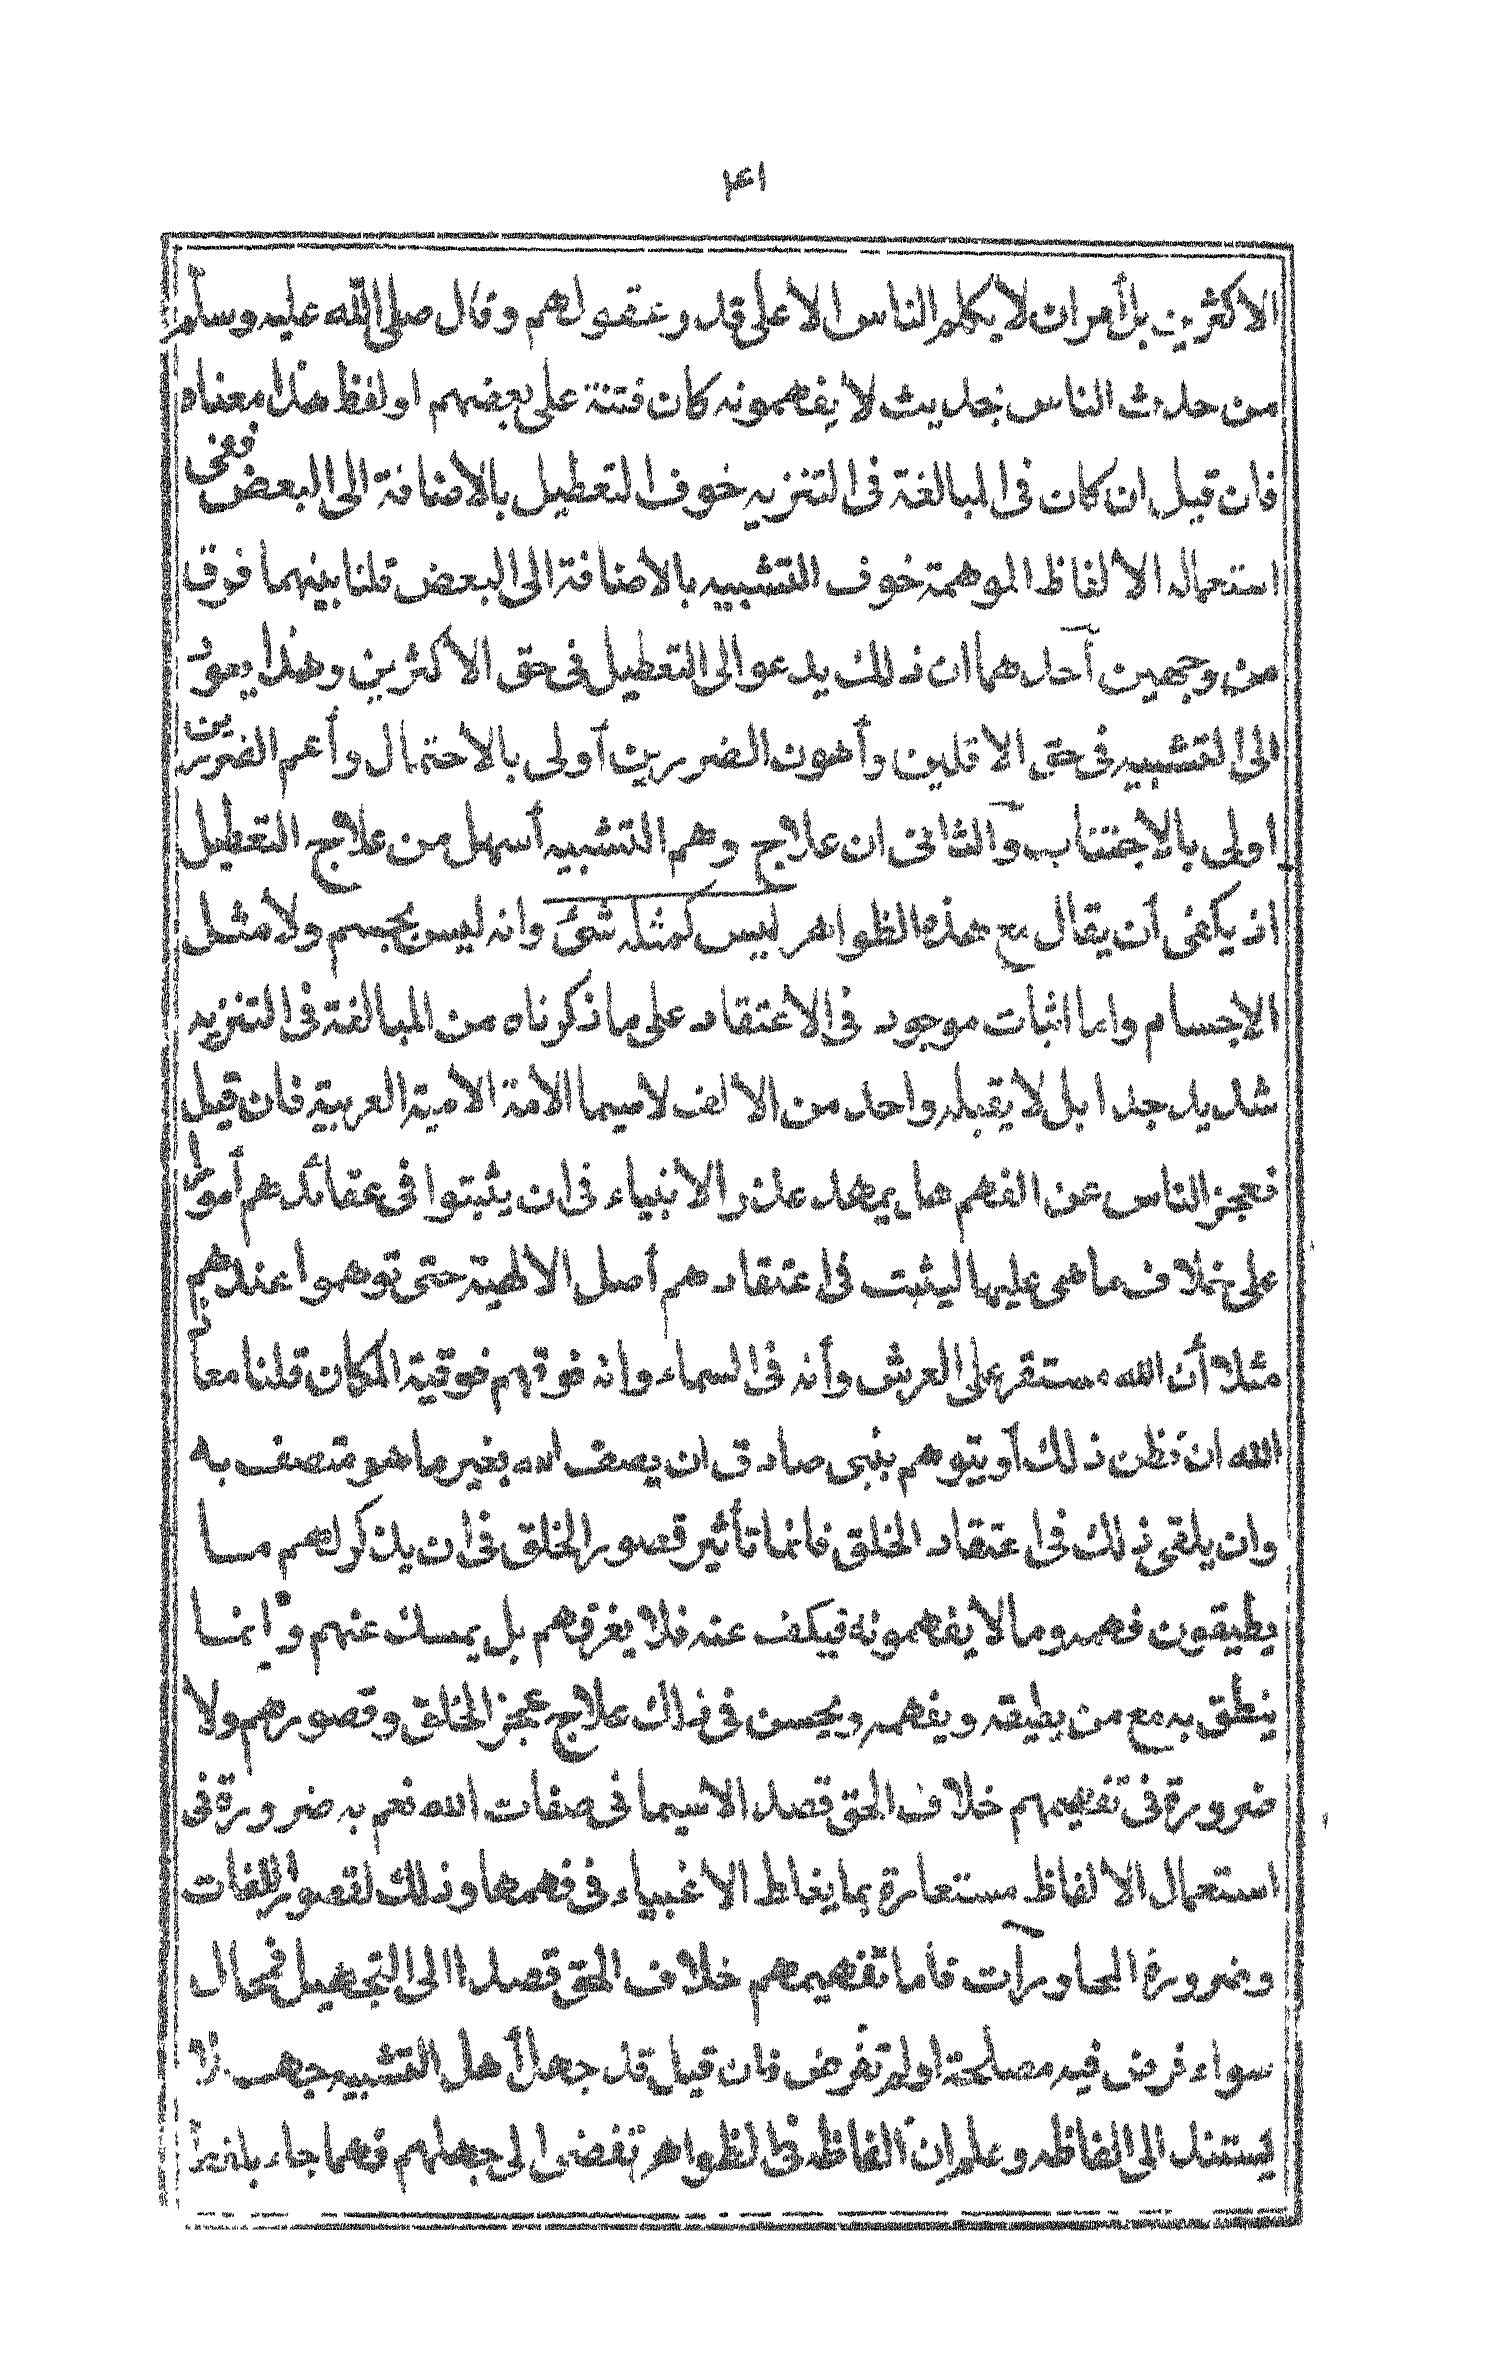 ١٤
الاكثرين بل أمر ان لا يكلم الناس الا على قدر عقولهم وقال صلى الله عليه وسلم
من حدث الناس بحديث لا يفهمونه كان فتنة على بعضهم او لفظ هذا معناه
فان قيل ان كان فى المبالغة فى التنزيه خوف التعطيل بالاضافة الى البعض ففى
استعماله الالفاظ الموهمة خوف التشبيه بالاضافة الى البعض قلنا بينهما فرق
من وجهين أحدهما ان ذلك يدعو الى التعطيل فى حق الاكثرين وهذا يعود
الى التشبيه فى حق الاقلين وأهون الضررين أولى بالاحتمال وأعم الضررين
اولى بالاجتناب والثانى ان علاج وهم التشبيه أسهل من علاج التعطيل
اذ يكفى أن يقال مع هذه الظواهر ليس كمثله شئ وانه ليس بجسم ولا مثل
الاجسام واما اثبات موجود فى الاعتقاد على ما ذكرناه من المبالغة فى التنزيه
شديد جدا بل لا يقبله واحد من الالف لا سيما الامة الامية العربية فان قيل
فعجز الناس عن الفهم هل يمهد عذر الانبياء فى ان يثبتوا فى عقائدهم أمورا
على خلاف ما هى عليها ليثبت فى اعتقادهم أصل الالهية حتى توهموا عندهم
مثلا أن الله مستقر على العرش وأنه فى السماء وانه فوقهم فوقية المكان قلنا معاذ
الله ان نظن ذلك أو يتوهم بنبى صادق ان يصف الله بغير ما هو متصف به
وان يلقى ذلك فى اعتقاد الخلق فانما تأثير قصور الخلق فى ان يذكر لهم ما
يطيقون فهمه وما لا يفهمونه فيكف عنه فلا يعرفهم بل يمسك عنهم وانما
ينطق به مع من يطيقه ويفهمه ويحسن فى ذلك علاج عجز الخلق وقصورهم ولا
ضرورة فى تفهيمهم خلاف الحق قصدا لاسيما فى صفات الله نعم به ضرورة فى
استعمال الالفاظ مستعارة بما يغلط الاغبياء فى فهمها وذلك لقصور اللغات
وضرورة المحاورات فأما تفهيمهم خلاف الحق قصدا الى التجهيل فمحال
سواء فرض فيه مصلحة او لم تفرض فان قيل قد جهل أهل التشبيه جهلا
يستند الى الفاظه وعلم ان ألفاظه فى الظواهر تفضى الى جهلهم فمهما جاء بلفظ